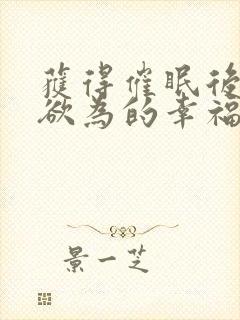 獲得催眠後
欲為的幸福
景一芝